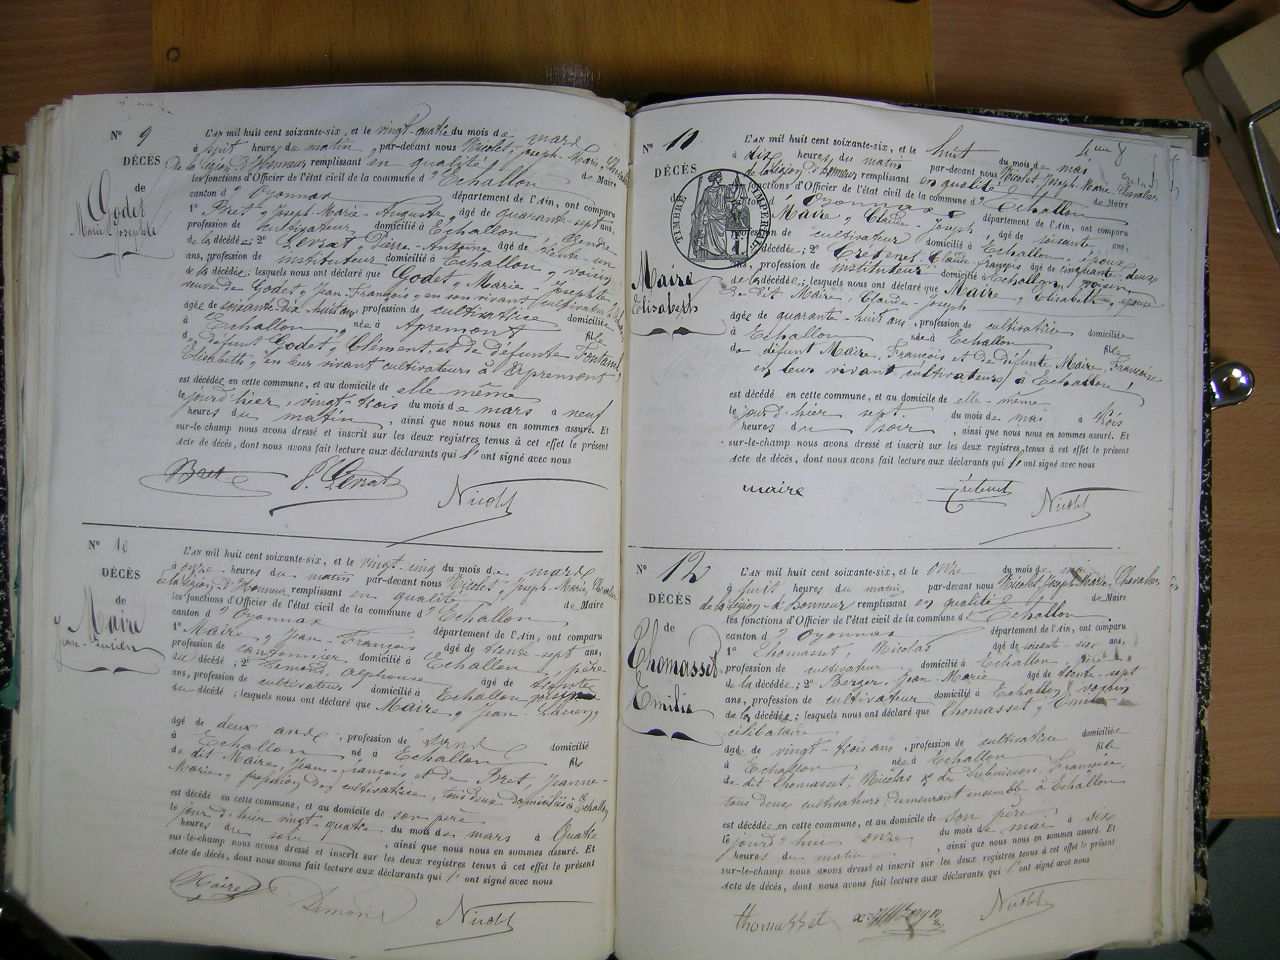 N° 9
DÉCÈS
de
Godet
Marie Josephte
L'AN mil huit cent soixante-six, et le vingt-quatre du mois de mars
à huit heures du matin, par-devant nous Nicolet, Joseph-Marie, Chevalier
de la Légion d'Honneur remplissant en qualité de Maire
les fonctions d'Officier de l'état civil de la commune d'Echallon
canton d'Oyonnax département de l'Ain, ont comparu
1° Bret, Joseph-Marie-Auguste, âgé de quarante-sept ans,
profession de cultivateur domicilié à Echallon, gendre
de la décédée; 2° Levrat, Pierre-Antoine âgé de trente-un
ans, profession de instituteur domicilié à Echallon, voisin
de la décédée; lesquels nous ont déclaré que Godet, Marie-Josephte,
veuve de Godet, Jean-François, en son vivant cultivateur
âgée de soixante-dix-huit ans, profession de cultivatrice domiciliée
à Echallon, née à Apremont fille
de défunt Godet, Clément, et de défunte Fontaine,
Elisabeth, en leur vivant cultivateurs à Apremont
est décédée en cette commune, et au domicile de elle même
le jourd'hier, vingt-trois du mois de mars à neuf
heures du matin, ainsi que nous nous en sommes assuré. Et
sur-le-champ nous avons dressé et inscrit sur les deux registres tenus à cet effet le présent
acte de décès, dont nous avons fait lecture aux déclarants qui l'ont signé avec nous
Bret P. Levrat Nicolet
N° 10
DÉCÈS
de
Maire
Jean-Lucien
L'AN mil huit cent soixante-six, et le vingt-cinq du mois de mars
à onze heures du matin par-devant nous Nicolet, Joseph-Marie, Chevalier
de la Légion d'Honneur remplissant en qualité de Maire
les fonctions d'Officier de l'état civil de la commune d'Echallon,
canton d'Oyonnax département de l'Ain, ont comparu
1° Maire, Jean-François âgé de trente-sept ans,
profession de cantonnier domicilié à Echallon, père
du décédé; 2° Alphonse âgé de
ans, profession de cultivateur domicilié à Echallon voisin
du décédé; lesquels nous ont déclaré que Maire, Jean-Lucien,
âgé de deux ans, profession de domicilié
à Echallon né à Echallon fils
de dit Maire, Jean-François et de Bret, Jeanne-
Marie, profession de cultivatrice, tous deux domiciliés à Echallon
est décédé en cette commune, et au domicile de son père
le jour d'hier vingt-quatre du mois de mars à quatre
heures du soir, ainsi que nous nous en sommes assuré. Et
sur-le-champ nous avons dressé et inscrit sur les deux registres tenus à cet effet le présent
acte de décès, dont nous avons fait lecture aux déclarants qui l'ont signé avec nous
Maire Nicolet
N° 11
DÉCÈS
de
Maire
Elisabeth
TIMBRE IMPERIAL
L'AN mil huit cent soixante-six, et le huit du mois de mai
à dix heures du matin par-devant nous Nicolet Joseph-Marie Chevalier
de la Légion d'honneur remplissant en qualité de Maire
les fonctions d'Officier de l'état civil de la commune d'Echallon
canton d'Oyonnax département de l'Ain, ont comparu
1° Maire, Claude-Joseph âgé de soixante ans,
profession de cultivateur domicilié à Echallon, époux
de la décédée; 2° Crétenet Claude-françois âgé de cinquante deux
ans, profession de instituteur domicilié à Echallon, voisin
de la décédée; lesquels nous ont déclaré que Maire, Elisabeth, épouse
de dit Maire, Claude-Joseph
âgée de quarante-huit ans, profession de cultivatrice domiciliée
à Echallon née à Echallon fille
de défunt Maire, François et de défunte Maire, Françoise
en leur vivant cultivateurs à Echallon,
est décédé en cette commune, et au domicile de elle-même
le jourd'hier sept. du mois de mai à trois
heures du soir, ainsi que nous nous en sommes assuré. Et
sur-le-champ nous avons dressé et inscrit sur les deux registres tenus à cet effet le présent
acte de décès, dont nous avons fait lecture aux déclarants qui l'ont signé avec nous
maire Crétenet Nicolet
N° 12
DÉCÈS
de
Thomasset
Emilie
L'AN mil huit cent soixante-six, et le onze du mois de mai
à huit heures du matin, par-devant nous Nicolet Joseph-Marie, Chevalier
de la Légion-d'honneur remplissant en qualité de Maire
les fonctions d'Officier de l'état civil de la commune d'Echallon
canton d'Oyonnax département de l'Ain, ont comparu
1° Thomasset, Nicolas âgé de soixante-six ans,
profession de cultivateur domicilié à Echallon, père
de la décédée; 2° Berger, Jean-Marie âgé de trente-sept
ans, profession de cultivateur domicilié à Echallon, voisin
de la décédée; lesquels nous ont déclaré que Thomasset, Emilie
célibataire
âgée de vingt-trois ans, profession de cultivatrice domiciliée
à Echallon, née à Echallon fille
de dit Thomasset, Nicolas & de Françoise,
tous deux cultivateurs demeurant ensemble à Echallon
est décédée en cette commune, et au domicile de son père
le jourd'hui onze du mois de mai à six
heures du matin, ainsi que nous nous en sommes assuré. Et
sur-le-champ nous avons dressé et inscrit sur les deux registres tenus à cet effet le présent
acte de décès, dont nous avons fait lecture aux déclarants qui l'ont signé avec nous
thomasset Nicolet